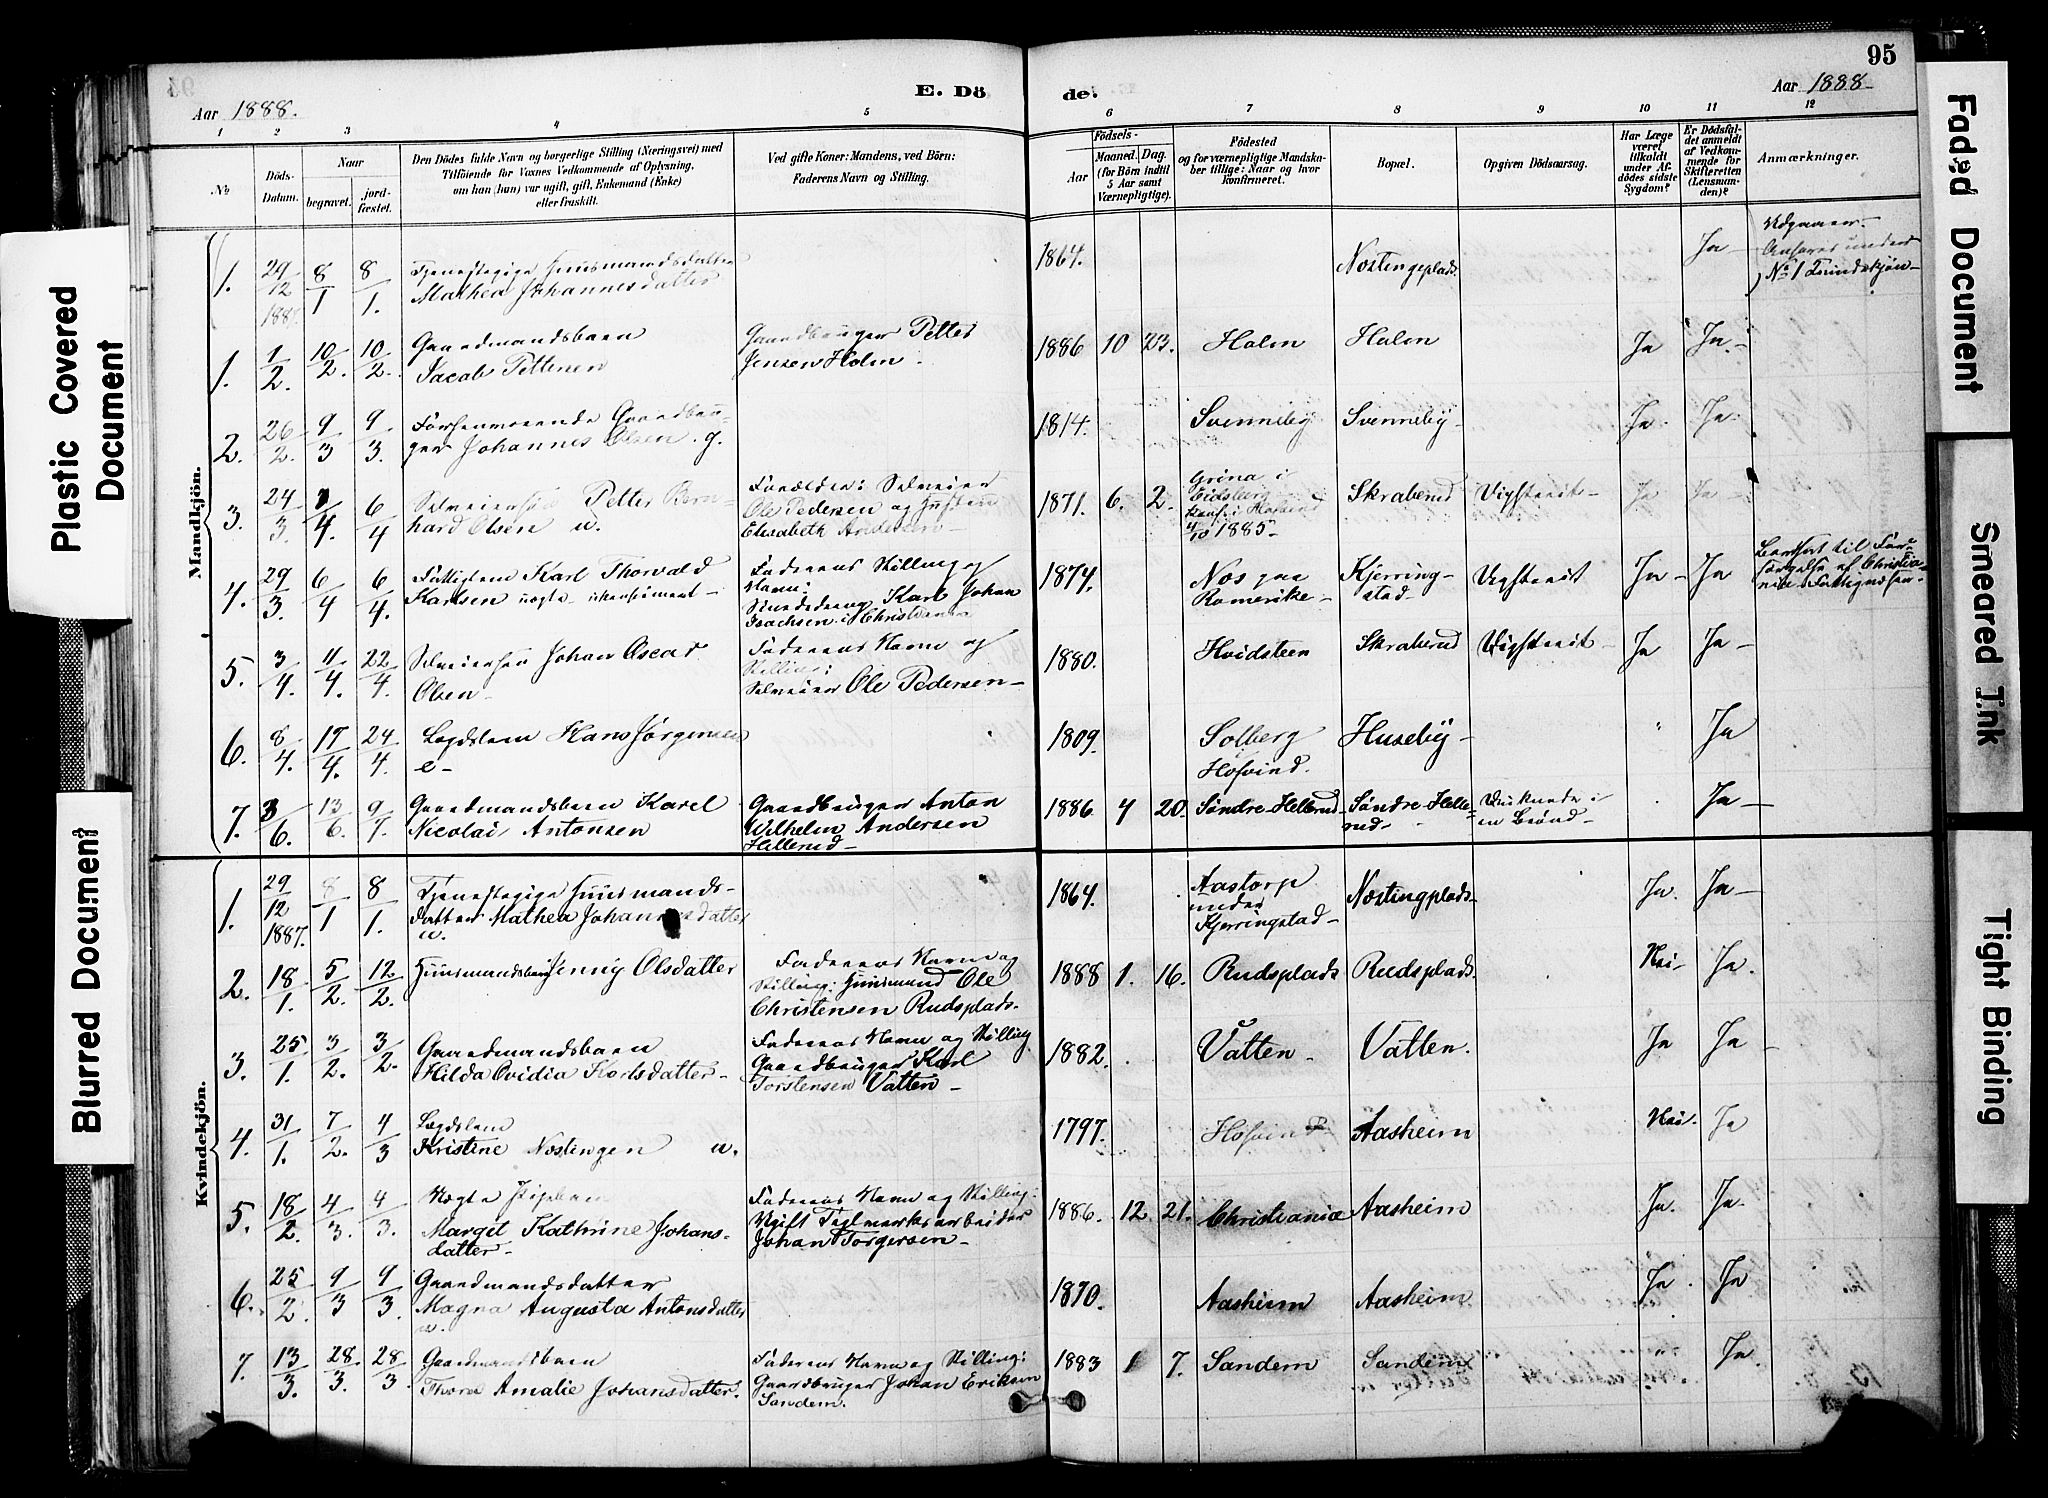 95
Aar 1888.
E. Dö
de.
Aar 1888
1 2 3 4 5
6 7 8 9 10 11 12
No
Döds-
Datum.
Naar
begravet.
jord-
fæstet.
Den Dödes fulde Navn og borgerlige Stilling (Næringsvei) med
Tilföiende for Voxnes Vedkommende af Oplysning,
om han (hun) var ugift, gift, Enkemand (Enke)
eller fraskilt.
Ved gifte Koner: Mandens, ved Börn:
Faderens Navn og Stilling.
Födsels-
Aar
Maaned. Dag.
(for Börn indtil
5 Aar samt
Værnepligtige).
Födested
og for værnepligtige Mandska-
ber tillige: Naar og hvor
konfirmeret.
Bopæl.
Opgiven Dödsaarsag.
Har Læge
været
tilkaldt
under Af-
dödes sidste
Sygdom?
Er Dödsfal-
det anmeldt
af Vedkom-
mende for
Skifteretten
(Lensman-
den)?
Anmærkninger.
Mandkjön.
1. 29/12 1887. 8/1 8/1. Tjenestepige Huusmandsdatter
Mathea Johannesdatter
1864. Nöstingplads. Ja -
Udgaaer.
Anföres under
No 1 Kvindekjön -
1. 1/2. 10/2. 10/2. Gaardmandsbarn
Jacob Pettersen
Gaardbruger Petter
Jensen Holm.
1886 10 23. Holm Holm Ja Ja. -
2. 26/2. 9/3 9/3. Forhenværende Gaardbru-
ger Johannes Olsen. g.
1814. Svenneby Svenneby - Ja. Ja.
3. 24/3. /4. 6/4 Selveiersön Petter Bern-
hard Olsen u.
Forældre: Selveier
Ole Pedersen og Hustru
Elisabeth Andersen -
1871. 6. 2. Gröna i
Eidsberg
Konf. i Hofvind
4/10 1885 -
Skraberud Ja Ja -
4. 29/3. 6/4 6/4. Fattiglem Karl Thorvald
Karlsen
Faderens Stilling og
Navn:
Karl Johan
Isachsen i Christiania
1874. Nes paa
Romerike -
Kjerring-
stad - Ja - Ja
til For-
sörgelse af Christia-
nia Fattigvæsen -
5. 3/4. 11/4. 22/4. Selveiersön Johan Oscar
Olsen -
Faderens Navn og
Stilling:
Selveier Ole Pedersen -
1880. Hvidsteen Skraberud Ja Ja -
6. 8/4. 17/4. 24/4. Lægdslem Hans Jörgensen
e -
1809. Solberg
Hofvind.
Huseby - " Ja
7. 3/6. 13/6. 9/7. Gaardmandsbarn Karel
Nicolai Antonsen
Gaardbruger Anton
Wilhelm Andersen
Hellerud -
1886 4 20. Söndre Hellerud Söndre Helle-
rud - Druknede i
en Brönd - Ja -
Kvindekjön.
1. 29/12 1887. 8/1 8/1. Tjenestepige Huusmands-
datter Mathea Johannesdatter
u.
1864. Aastorp
under
Kjerringstad -
Nöstingplads - Ja. Ja -
2. 18/1. 5/2. 12/2. Huusmandsbarn Jenny Olsdatter
Faderens Navn og
Stilling: Huusmand Ole
Christensen Rudsplads.
1888 1. 16. Rudsplads Rudsplads. Nei - Ja.
3. 25/1. 3/2. 3/2. Gaardmandsbarn
Hilda Ovidia Karlsdatter -
Faderens Navn og Stilling
Gaardbruger Karl
Torstensen Vatten -
1882. Vatten - Vatten. Ja Ja -
4. 31/1. 7/2. 4/3 Lægdslem
Kristine Nöstingen u.
1797. Hofvind Aasheim Nei. Ja
5. 18/2. 4/3. 4/3. Uægte Pigebarn
Marget Kathrine Johans-
datter -
Faderens Navn og Stilling:
Ugift Teglverksarbeider
Johan Torgersen -
1886. 12. 21. Christiania Aasheim Ja. Ja.
6. 25/2 9/3 9/3. Gaardmandsdatter
Magna Augusta Antonsdatter
u.
1870. Aasheim Aasheim. Ja. Ja
7. 13/3. 28/3. 28/3 Gaardmandsbarn
Thora Amalie Johansdatter.
Faderens Navn og Stilling:
Gaardbruger Johan Eriksen
Sandem.
1883 1 7. Sandem Sandem " Ja.
Plastic Covered
Document
Blurred Document
Faded Document
Smeared Ink
Tight Binding